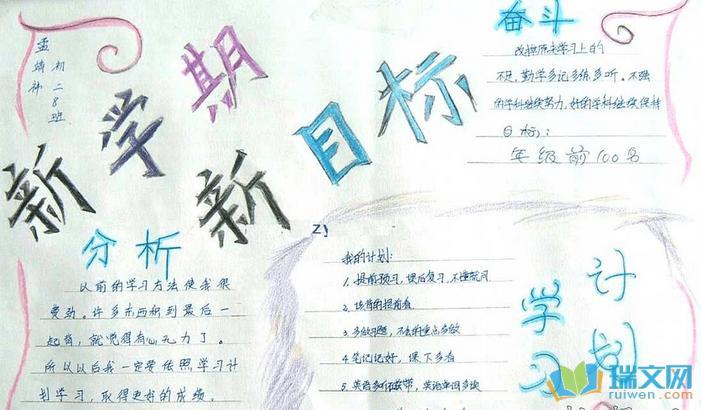 初二8班
孟靖
新学期
新目标
奋斗
改掉原来学习上的
不足,勤学多记多练多听。不强
的学科继续努力,好的学科继续保持
目标:
年级前100名
分析
以前的学习方法使我很
费劲。许多东西积到最后一
起背,就觉得有心无力了。
所以以后我一定要依照学习计
划学习,取得更好的成绩。
我的计划:
1.提前预习,课后复习,不懂就问
2.该背的提前背
3.多做习题,不会的重点多做
4.笔记记好,课下多看
5.英语多听磁带,英语单词多读
学习
计划
瑞文网
ruiwen.com